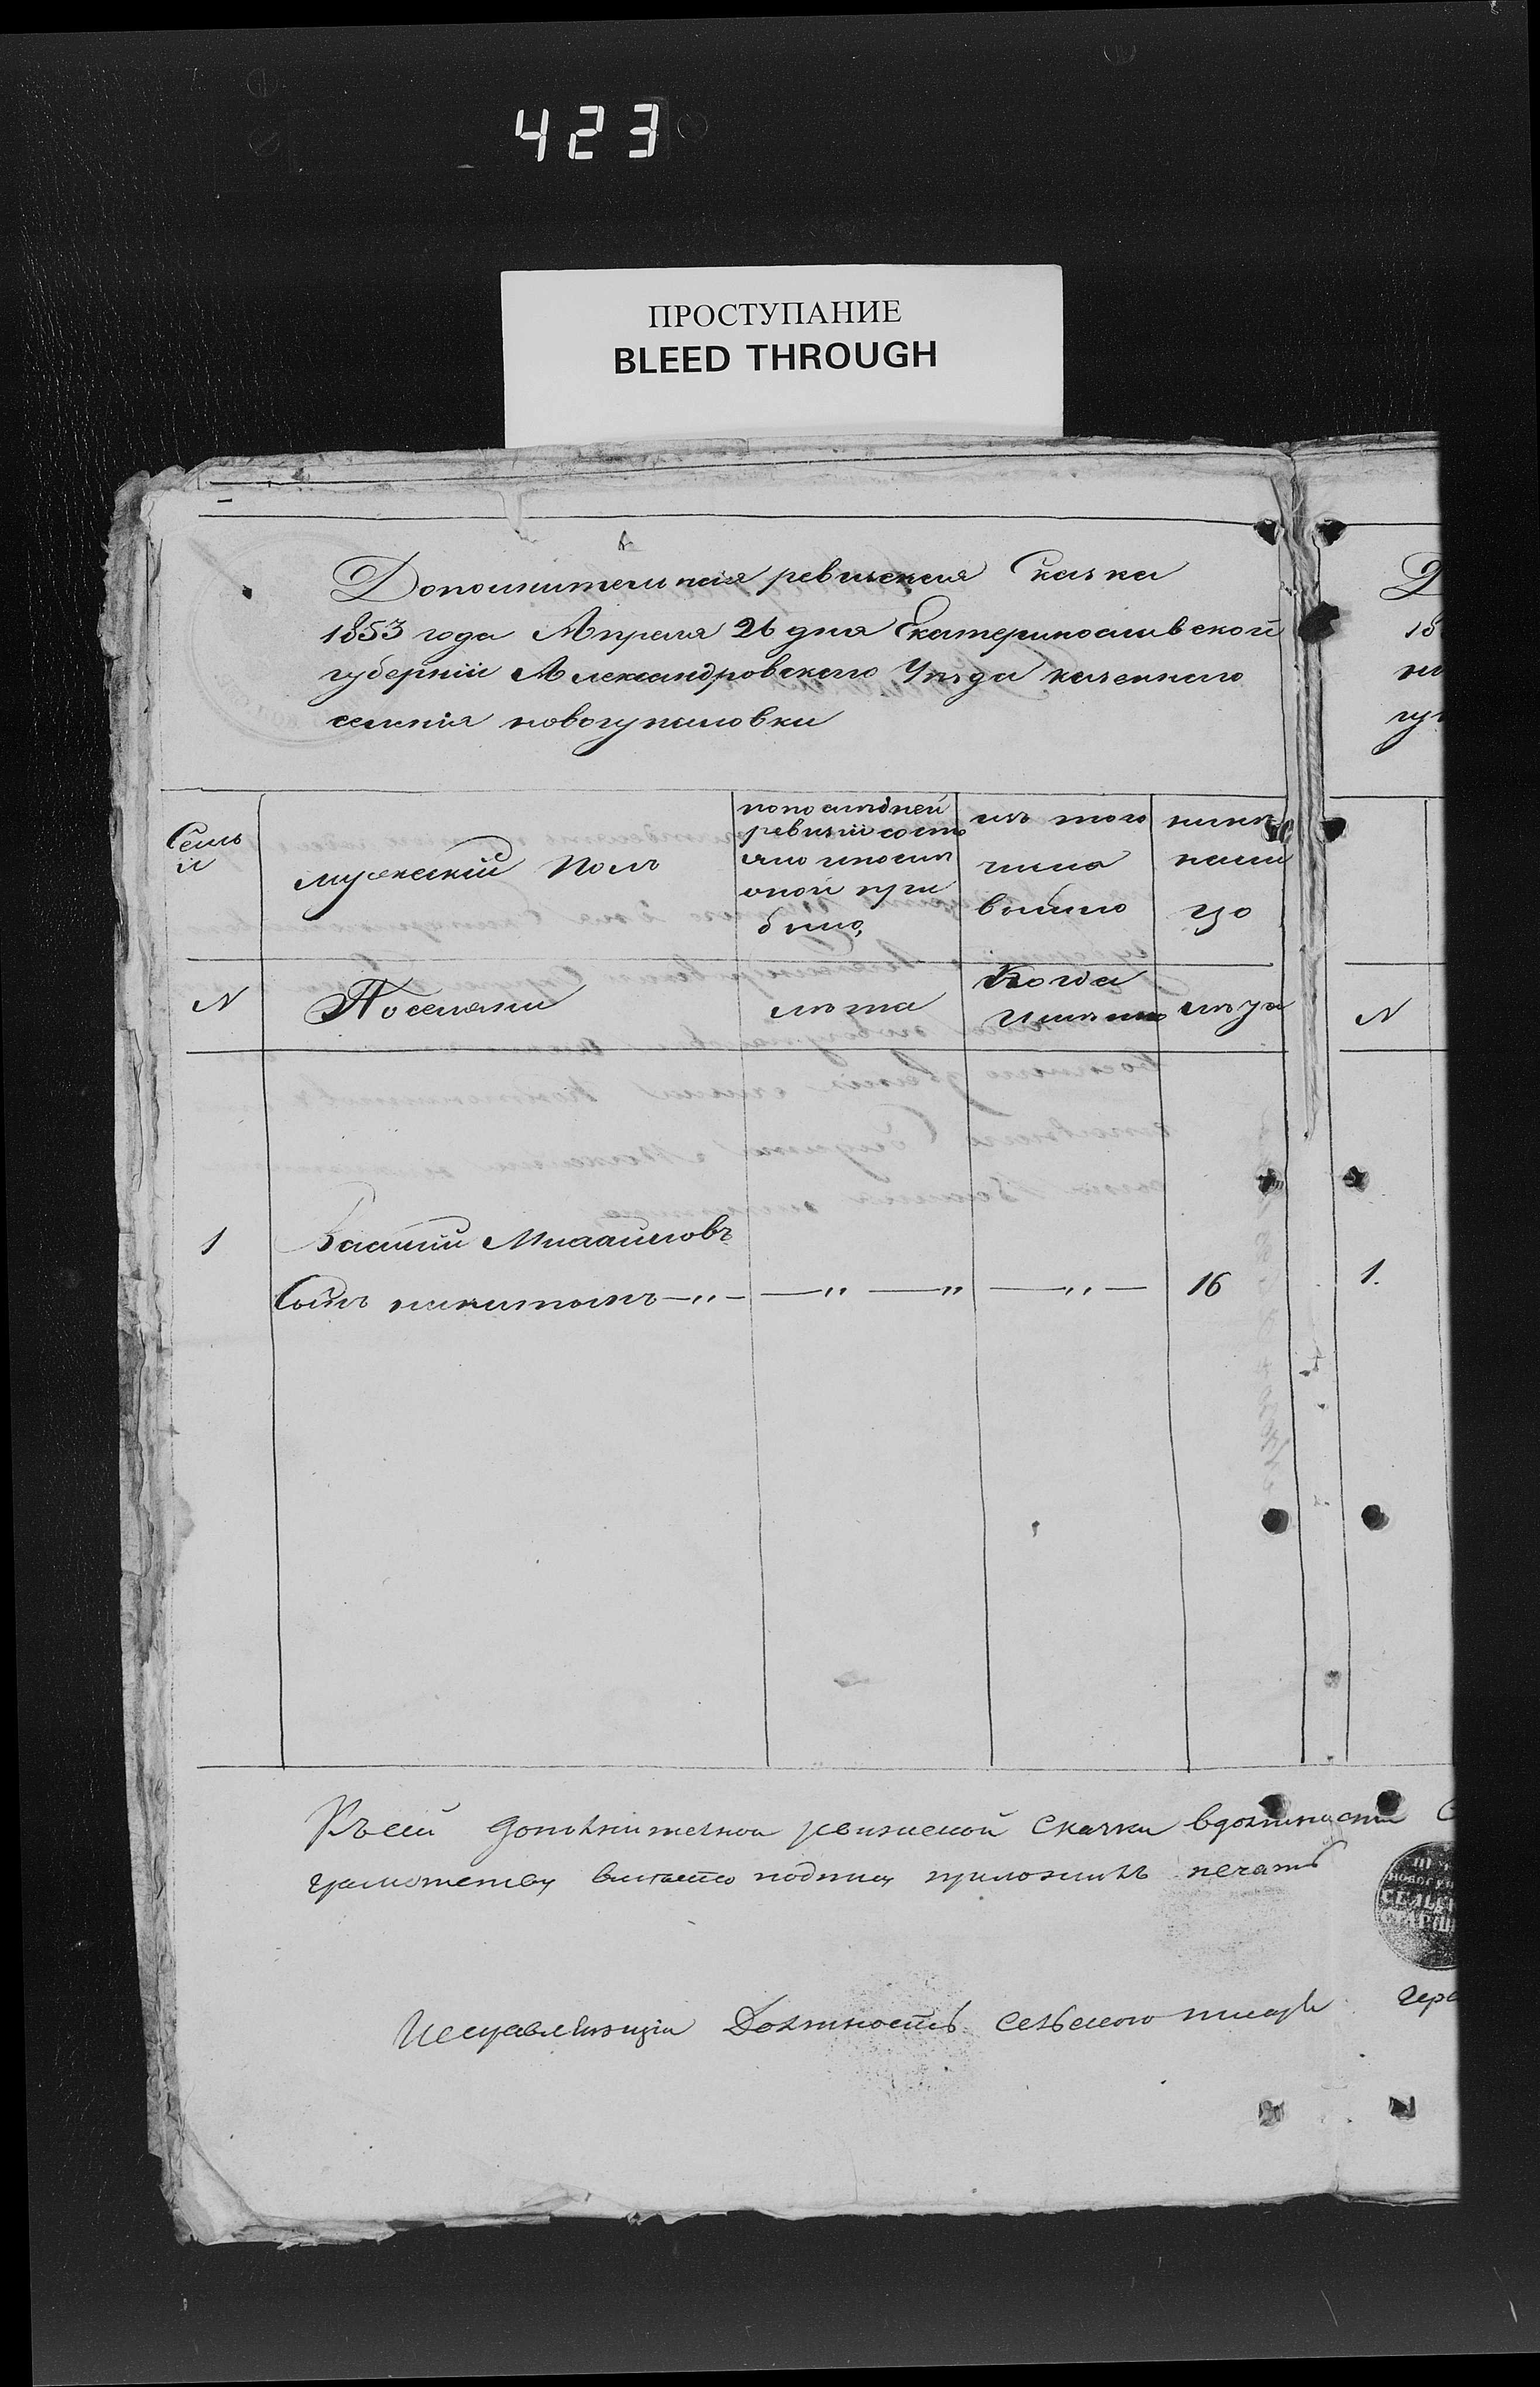 423
ПРОСТУПАНИЕ
BLEED THROUGH
Дополнительная ревизская Сказка
1853 года Апреля 26 дня Екатеринославской
губерніи Александровскаго Уѣзда казеннаго
селенія новогупаловки
Семь
и
мужескій Полъ
по последней
ревизіи состо
яло и после
оной при
было
изъ того
числа
выбыло
нынѣ
на ли
цо
N
Поселяни
лѣта
Когда
Именно
лѣта
N
1
Василій Михайловъ
Сынъ никитинъ —„— —„ —„ —„— 16
1.
Къ сей дополнительной ревизской Скаски в должности С
грамотству вместо подписи приложилъ печать
Исправляющій Должность Сельского писаря